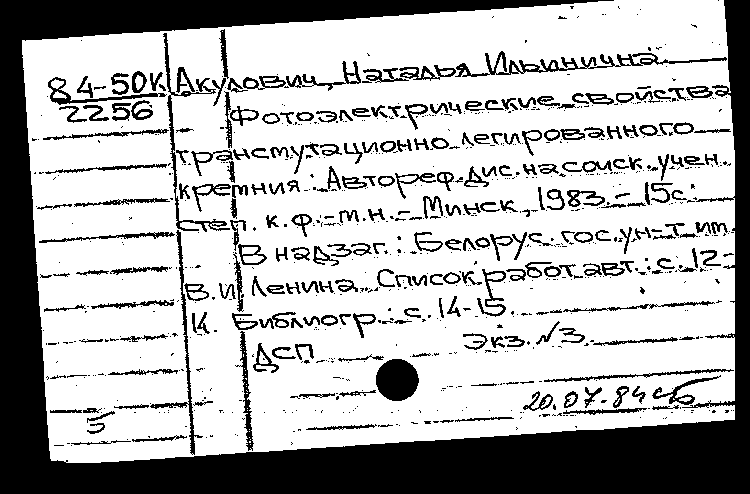 84-50К Акулович, Наталья Ильинична.
2256 Фотоэлектрические свойства
трансмутационно легированного
кремния: Автореф. дис. на соиск. учен.
степ. к.ф.-м.н. - Минск, 1983. - 15с.
В надзаг.: Белорус. гос. ун-т им.
В.И. Ленина. Список работ авт.: с. 12-
14. Библиогр.: с. 14-15.
ДСП Экз. №3.
20.07.84
5